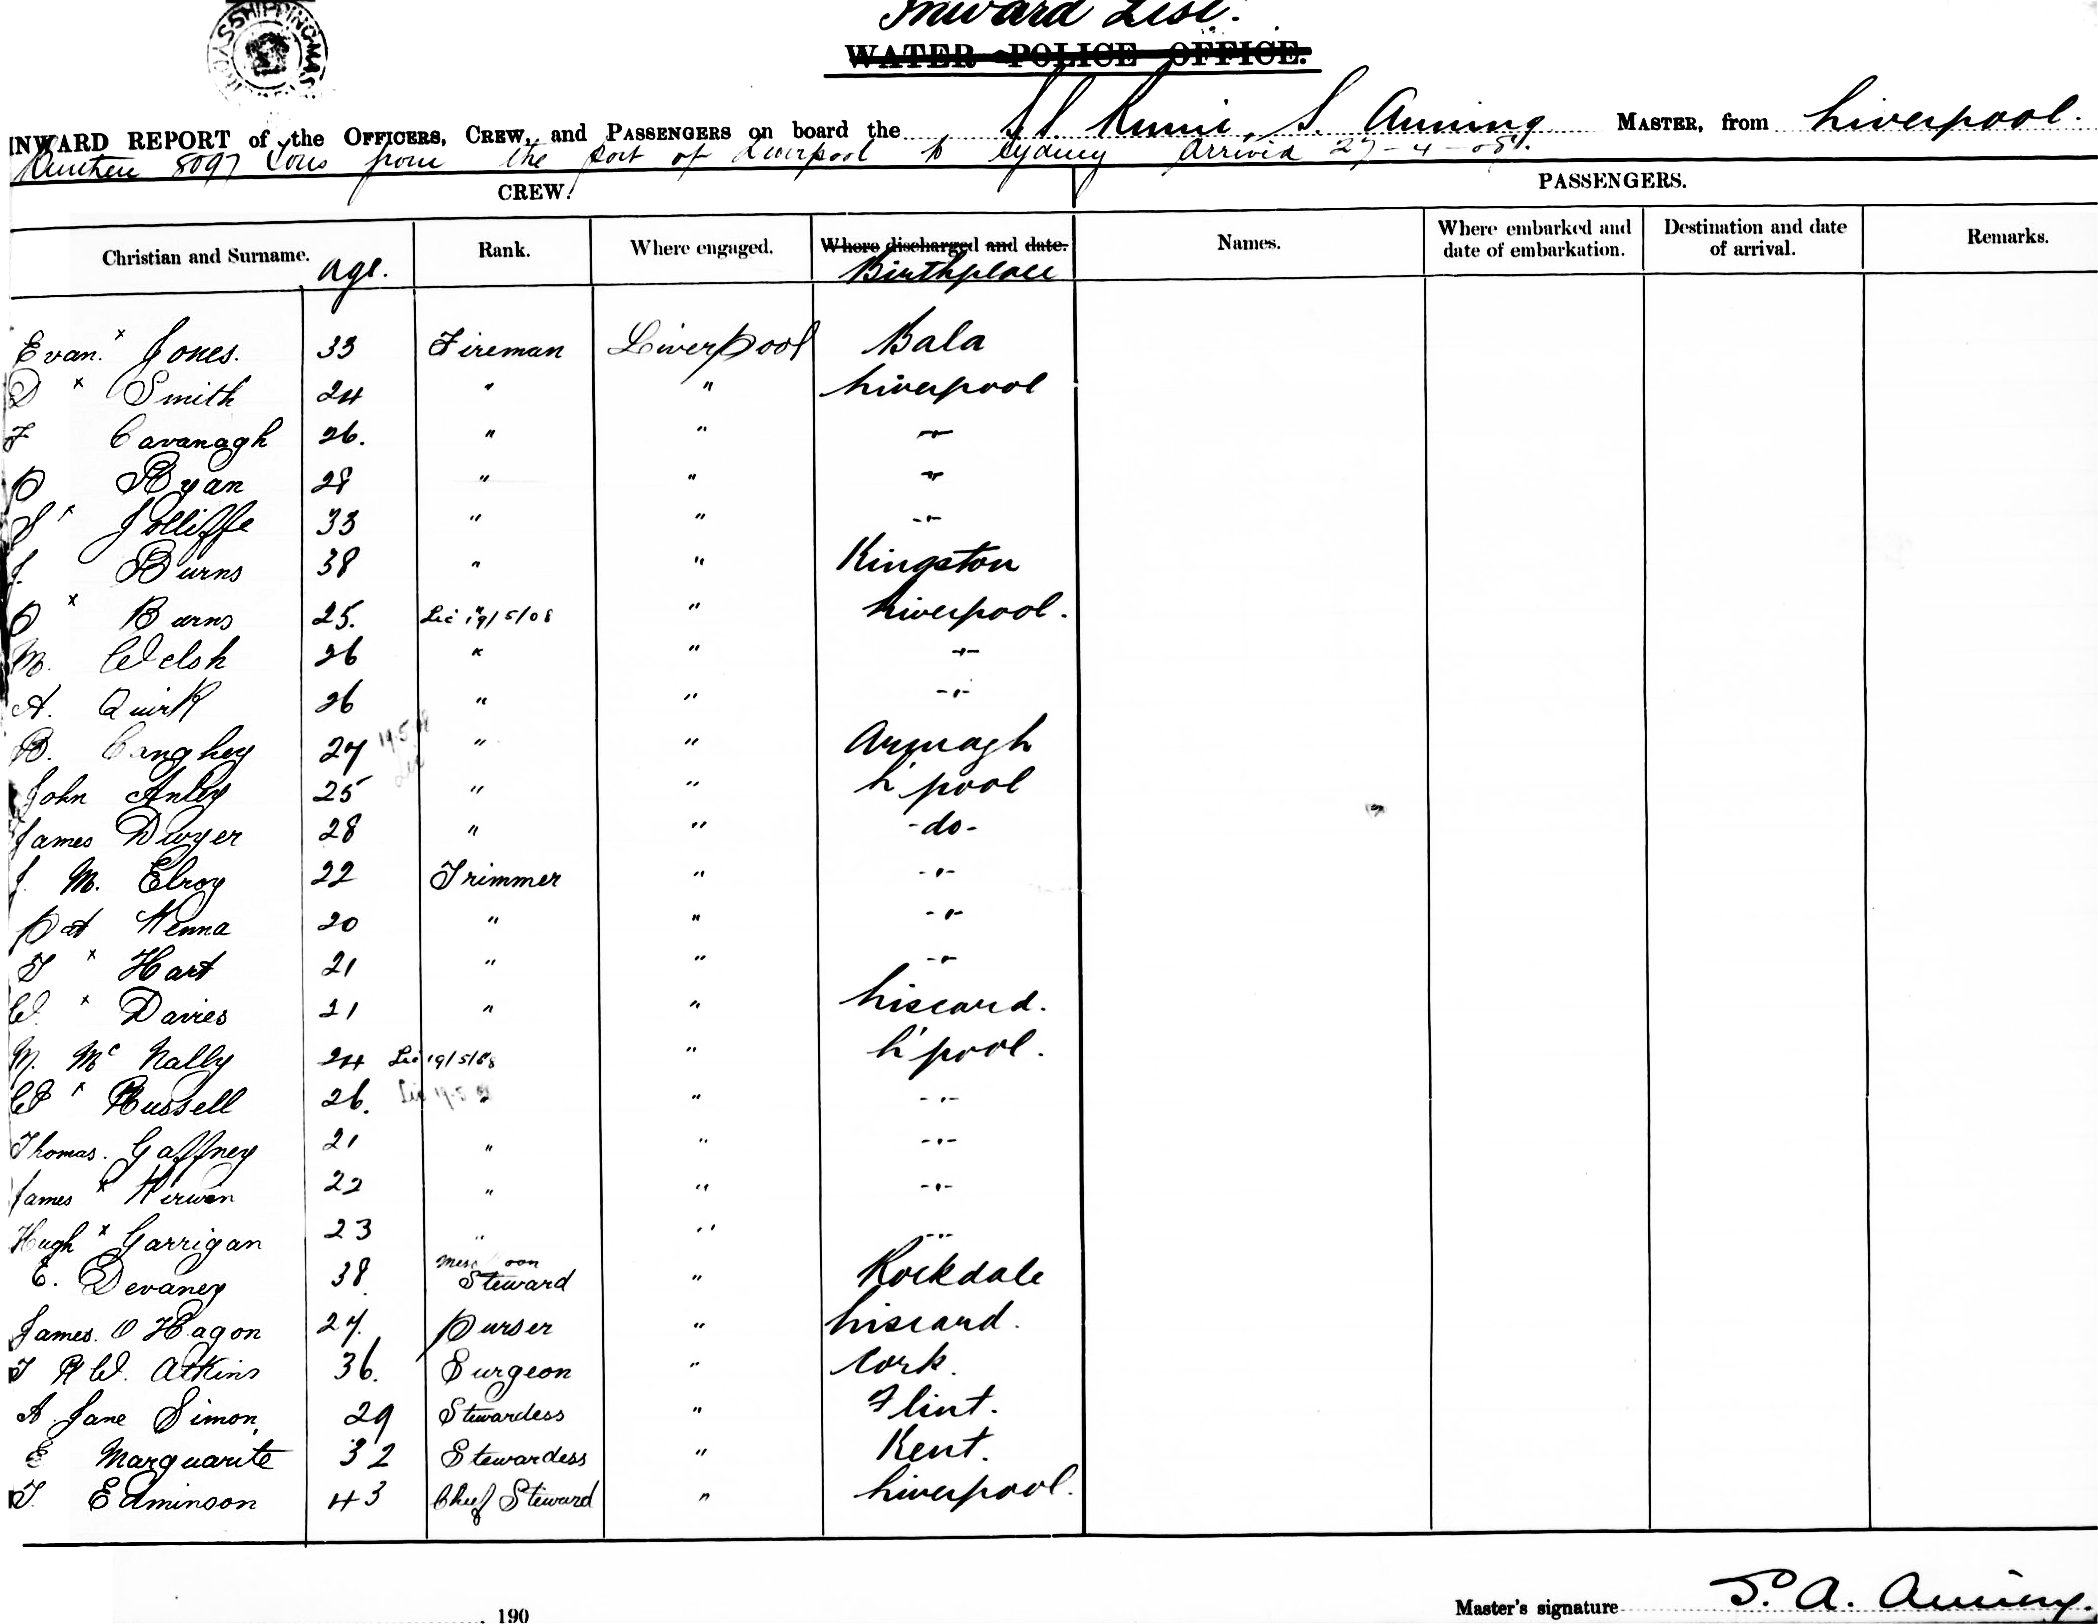 Inward List.
WATER POLICE OFFICE.
INWARD REPORT of the OFFICERS, CREW, and PASSENGERS on board the S.S. Runic, S. Anning MASTER, from Liverpool.
8097 Tons from the port of Liverpool to Sydney Arrived 27-4-08.
CREW. PASSENGERS.
Christian and Surname. Age. Rank. Where engaged. Where discharged and date. Birthplace Names. Where embarked and date of embarkation. Destination and date of arrival. Remarks.
Evan. x Jones. 33 Fireman Liverpool Bala
D x Smith 24 " " Liverpool
F Cavanagh 26. " " -"-
P Ryan 28 " " -"-
S x Jolliffe 33 " " -"-
J. Burns 38 " " Kingston
P x Burns 25. Lic 19/5/08 " Liverpool.
M. Welsh 26 " " -"-
A. Quirk 26 " " -"-
B. Canghey 27 19.5.08 Lic " " Armagh
John Anley 25 " " L'pool
James Dwyer 28 " " -do-
J. M. Elroy 22 Trimmer " -"-
Pat Kenna 20 " " -"-
T x Hart 21 " " -"-
W. x Davies 21 " " Liscard.
M. Mc Nally 24 Lic 19/5/08 " L'pool.
W x Russell 26. Lic 19-5-08 " -"-
Thomas. Gaffney 21 " " -"-
James x Kirwan 22 " " -"-
Hugh x Garrigan 23 " " -"-
E. Devaney 38 Steward " Rockdale
James. O Hagon 27. Purser " Liscard.
T R W. Atkins 36. Surgeon " Cork.
A Jane Simon, 29 Stewardess " Flint.
E Marguarite 32 Stewardess " Kent.
T. Edminson 43 Chief Steward " Liverpool.
190 Master's signature S. A. Anning.